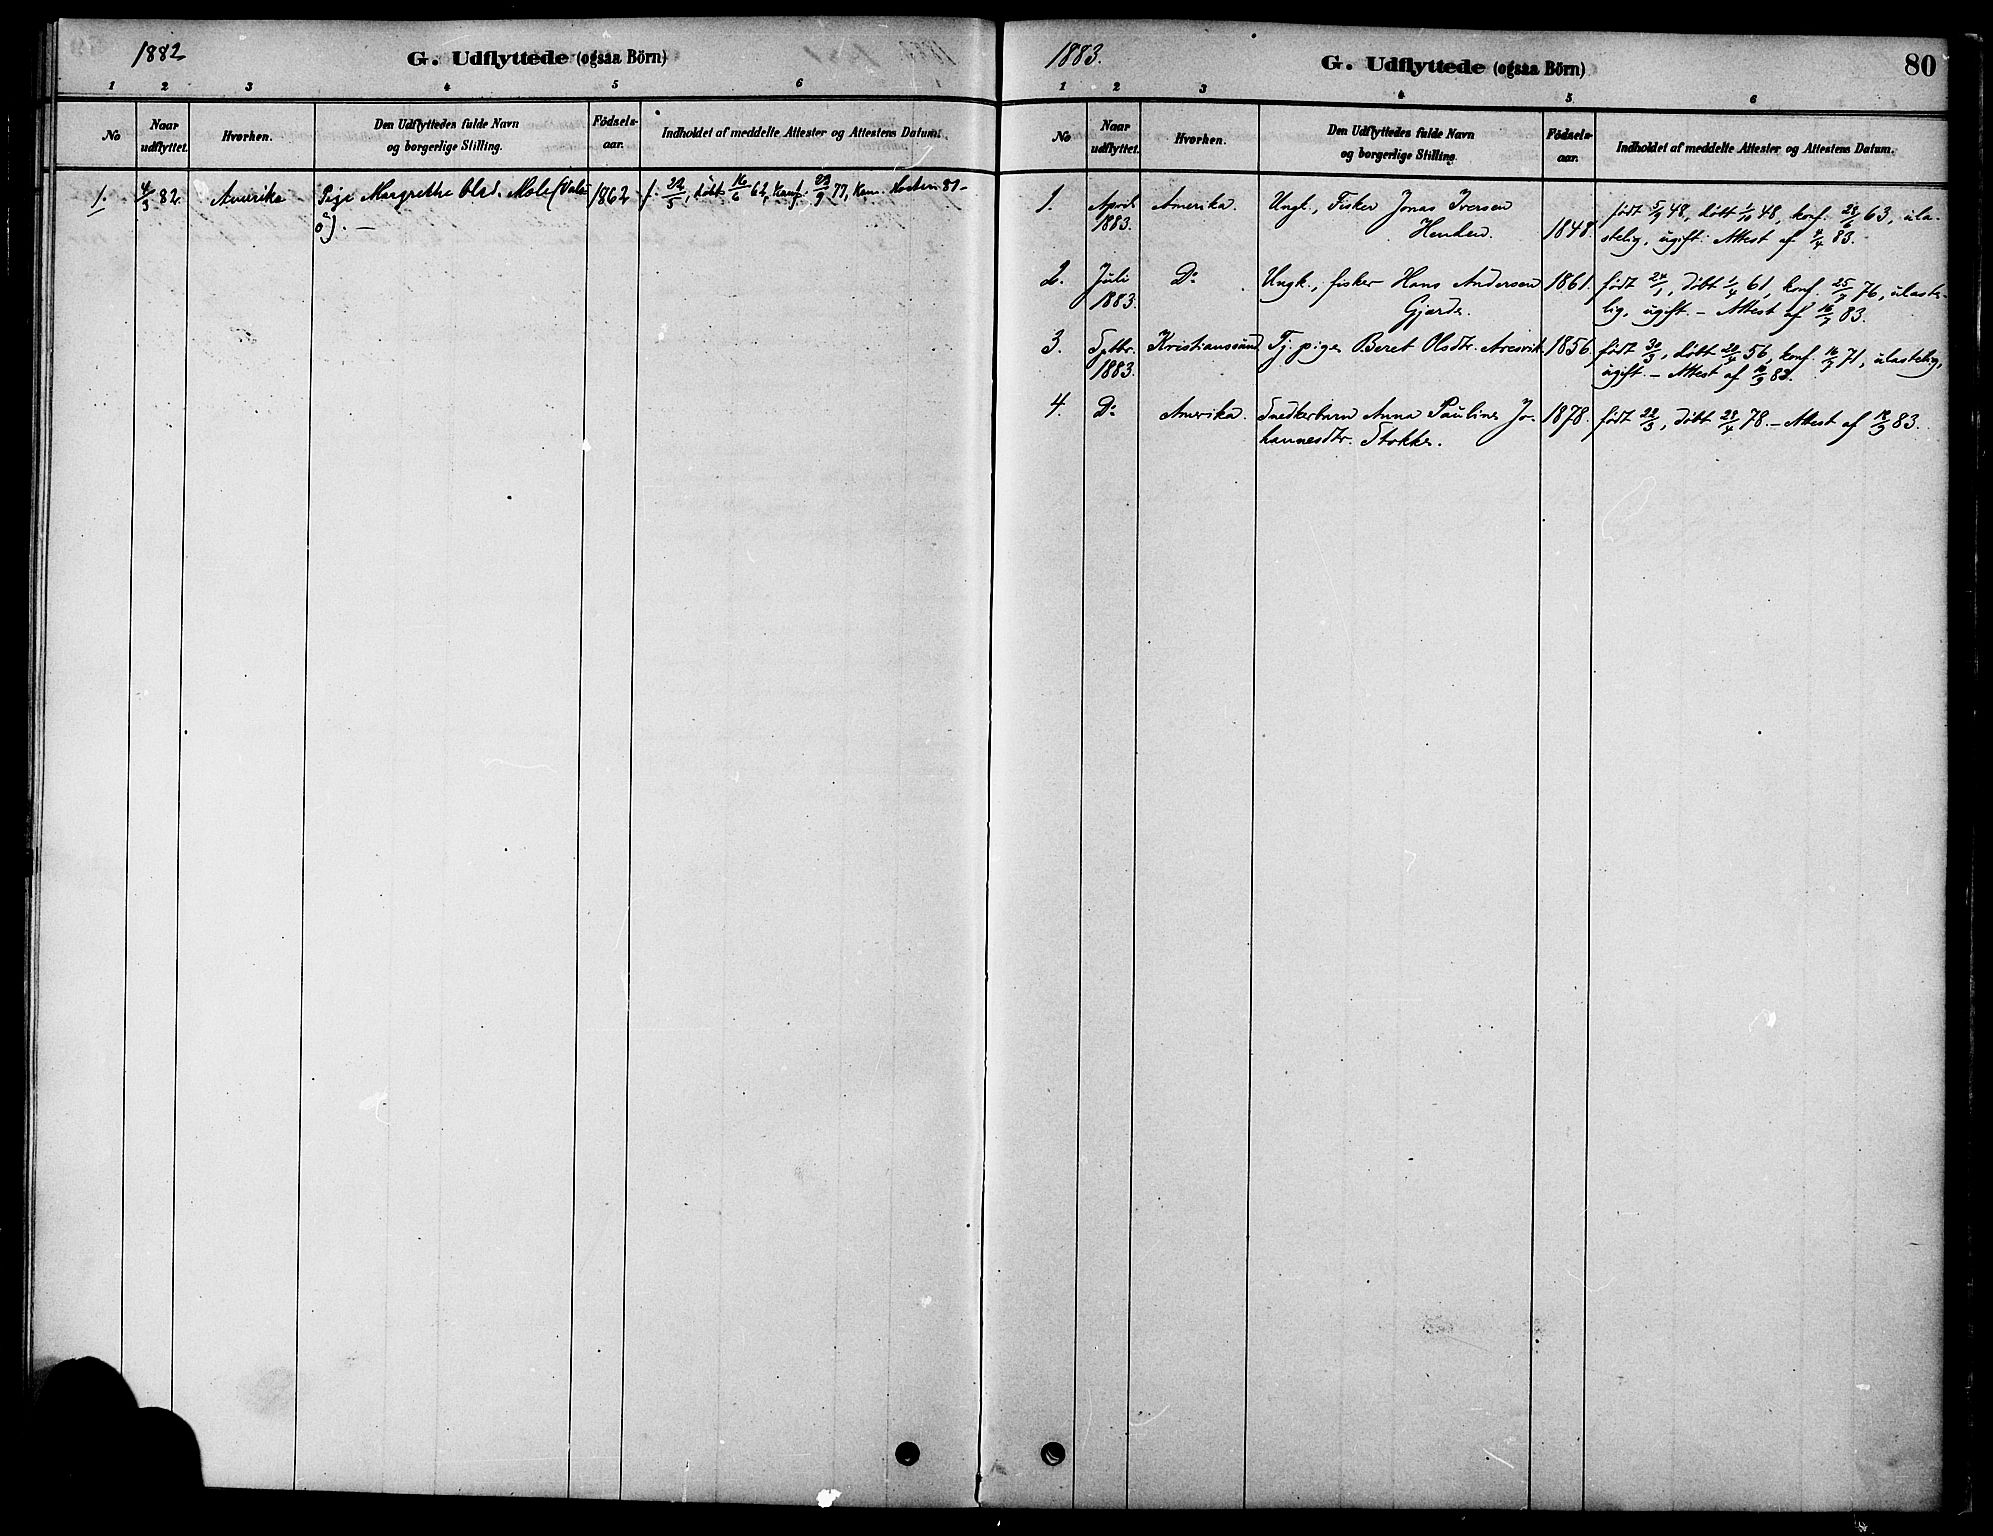 1882
G. Udflyttede (ogsaa Börn)
1 2 3 4 5 6
No
Naar udflyttet.
Hvorhen.
Den Udflyttedes fulde Navn
og borgerlige Stilling.
Födsels-
aar.
Indholdet af meddelte Attester og Attestens Datum.
1. 4/3 82 Amerika Pige Margrethe Olsd. 1862 f. 22/5, döbt 16/6 62, Konf. 23/9 77, Kom. Hösten 81 –
ö). –
1883.
G. Udflyttede (ogsaa Börn)
80
1 2 3 4 5 6
No
Naar udflyttet.
Hvorhen.
Den Udflyttedes fulde Navn
og borgerlige Stilling.
Födsels-
aar.
Indholdet af meddelte Attester og Attestens Datum.
1. April 1883. Amerika. Ungk., Fisker Jonas Iversen 1848. født 5/9 48, døbt 1/10 48, konf. 28/6 63, ula-
stelig, ugift. Attest af 4/4 83.
2. Juli 1883. Do Ungk., fisker Hans Andersen 1861. født 24/1, døbt 1/4 61, konf. 25/7 76, ulaste-
Gjærde. lig, ugift. – Attest af 16/7 83.
3. Sptbr. 1883. Kristianssund Tj. pige Beret Olsdtr. Aresvik. 1856. født 30/3, døbt 20/4 56, konf. 16/7 71, ulastelig,
ugift. – Attest af 10/9 83.
4. Do Amerika. Snedkerbarn Anna Pauline Jo- 1878. født 22/3, døbt 28/4 78. – Attest af 18/9 83.
hannesdtr. Stokke.